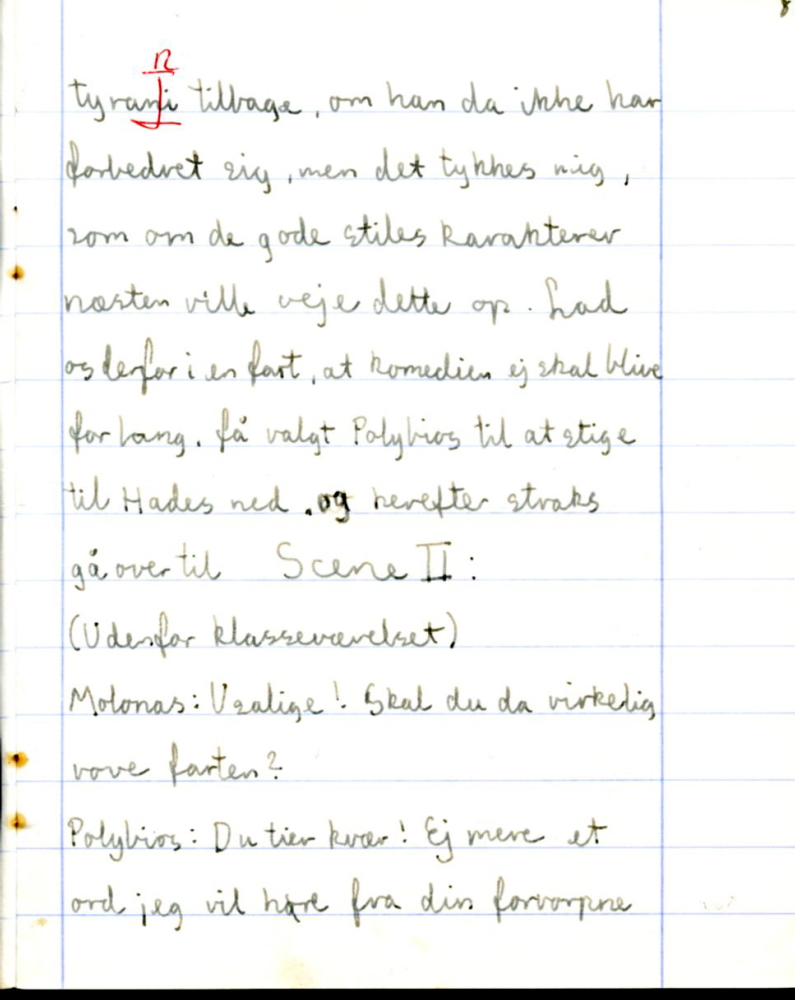 n
tyranji tilbage, om han da ikke har
forbedret sig, men det tykkes mig,
som om de gode stiles karakterer
næsten ville veje dette op. Lad
os derfor i en fart, at komedien ej skal blive
for lang, få valgt Polybios til at stige
til Hades ned, og herefter straks
gå over til Scene II:
(Udenfor klasseværelset)
Molonas: Usalige! Skal du da virkelig
vove farten?
Polybios: Du tier kvær! Ej mere et
ord jeg vil høre fra din forvorpne